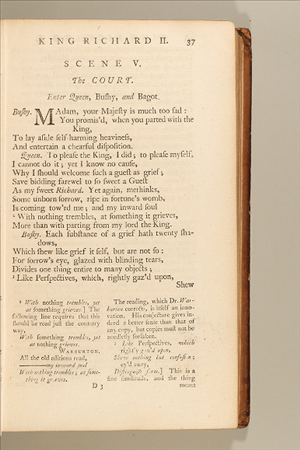 KING RICHARD II. 37
SCENE V.
The COURT.
Enter Queen, Buſhy, and Bagot.
Buſhy. MAdam, your Majeſty is much too ſad:
You promis'd, when you parted with the
King,
To lay aſide ſelf-harming heavineſs,
And entertain a chearful diſpoſition.
Queen. To pleaſe the King, I did; to pleaſe myſelf,
I cannot do it; yet I know no cauſe,
Why I ſhould welcome ſuch a gueſt as grief;
Save bidding farewel to ſo ſweet a Gueſt
As my ſweet Richard. Yet again, methinks,
Some unborn ſorrow, ripe in fortune's womb,
Is coming tow'rd me; and my inward ſoul
With nothing trembles, at ſomething it grieves,
More than with parting from my lord the King.
Buſhy. Each ſubſtance of a grief hath twenty ſha-
dows,
Which ſhew like grief it ſelf, but are not ſo:
For ſorrow's eye, glazed with blinding tears,
Divides one thing entire to many objects;
Like Perſpectives, which, rightly gaz'd upon,
Shew
With nothing trembles, yet
at ſomething grieves.] The
following line requires that this
ſhould be read juſt the contrary
way,
With ſomething trembles, yet
at nothing grieves.
WARBURTON.
All the old editions read,
my inward ſoul
With nothing trembles; at ſome-
thing it grieves.
The reading, which Dr. War-
burton corrects, is itſelf an inno-
vation. His conjecture gives in-
deed a better ſenſe than that of
any copy, but copies muſt not be
needleſsly forſaken.
Like Perſpectives, which
rightly gaz'd upon,
Shew nothing but confuſion;
ey'd awry,
Diſtinguiſh form.] This is a
fine ſimilitude, and the thing
D 3 meant